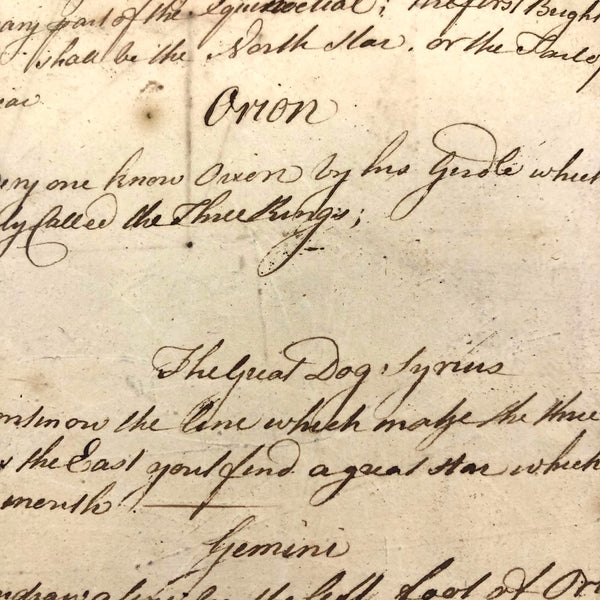 any part of the Equinoctial; the first Bright
shall be the North Star, or the Tail of
Orion
any one know Orion by his Girdle which
ly Called the Three Kings;
The Great Dog, Syrius
the line which make the three
the East you'l find a great star which
month
Gemini
the left foot of Ori